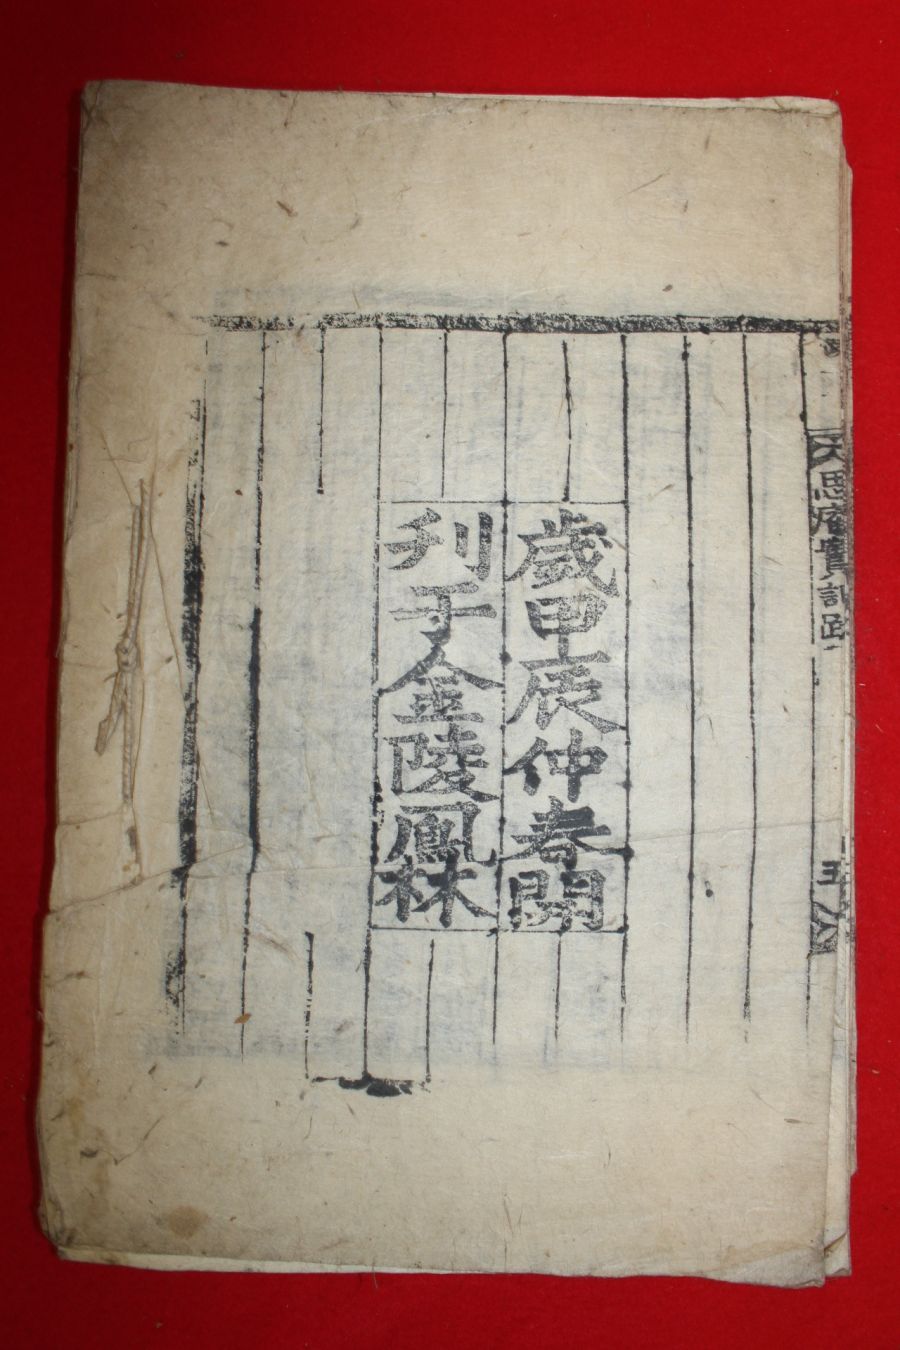 歲甲辰仲春開
刋于金陵鳳林
思庵實記跋
五